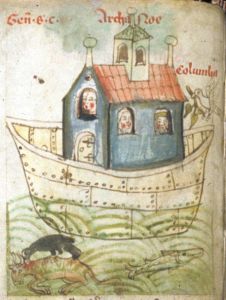 Gen. 8. c. Archa Noe
Columba